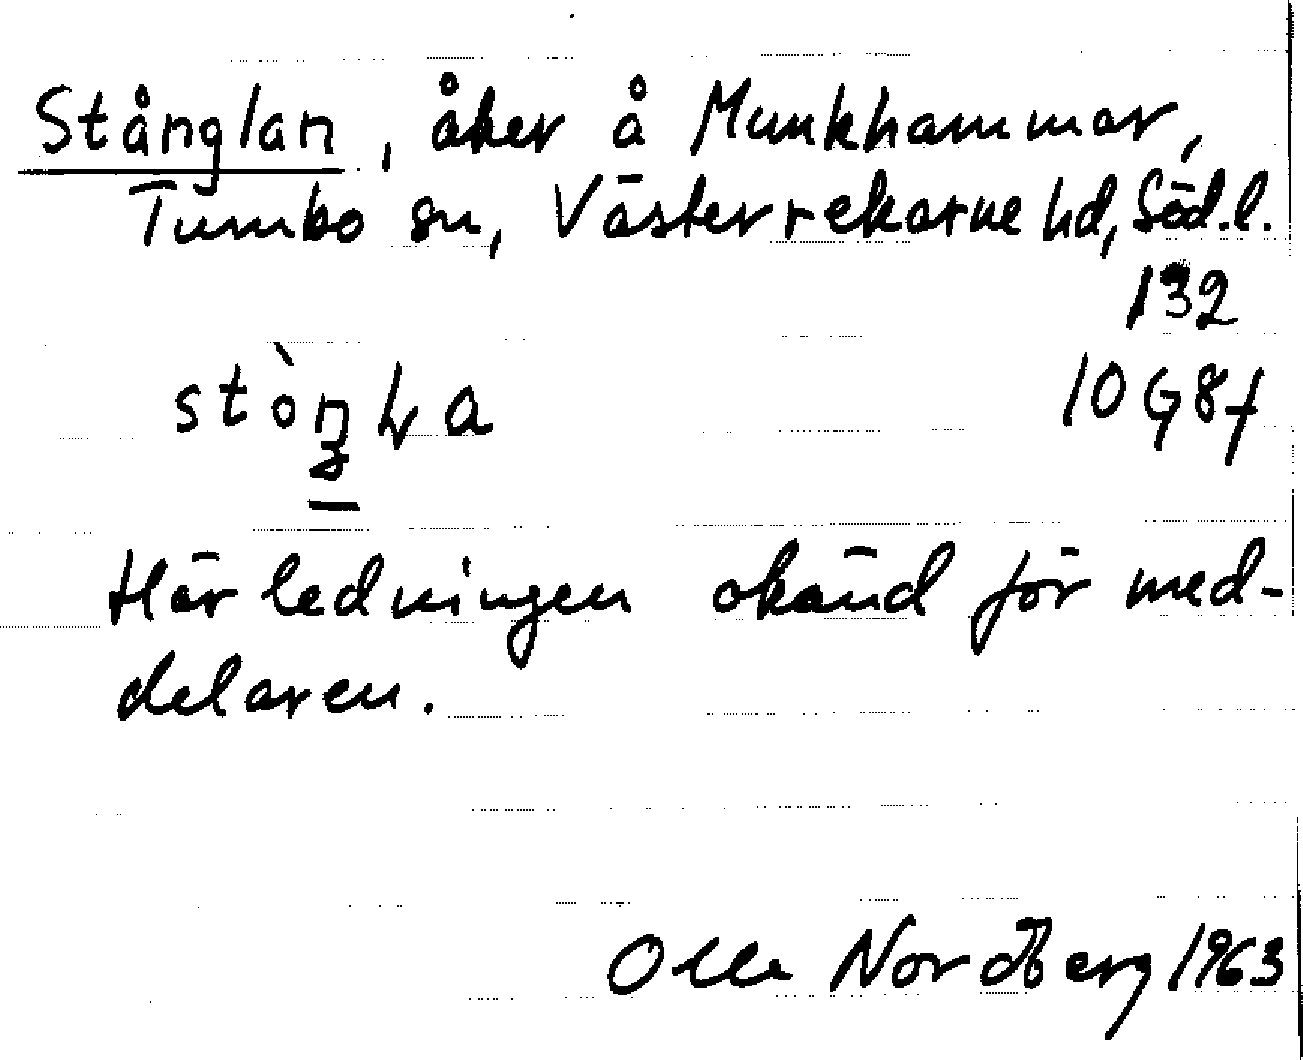 Stånglan, åker å Munkhammar,
Tumbo sn, Västerrekarne hd, Söd.l.
132
10 G 8 f
Härledningen okänd för med-
delaren.
Olle Nordberg 1963